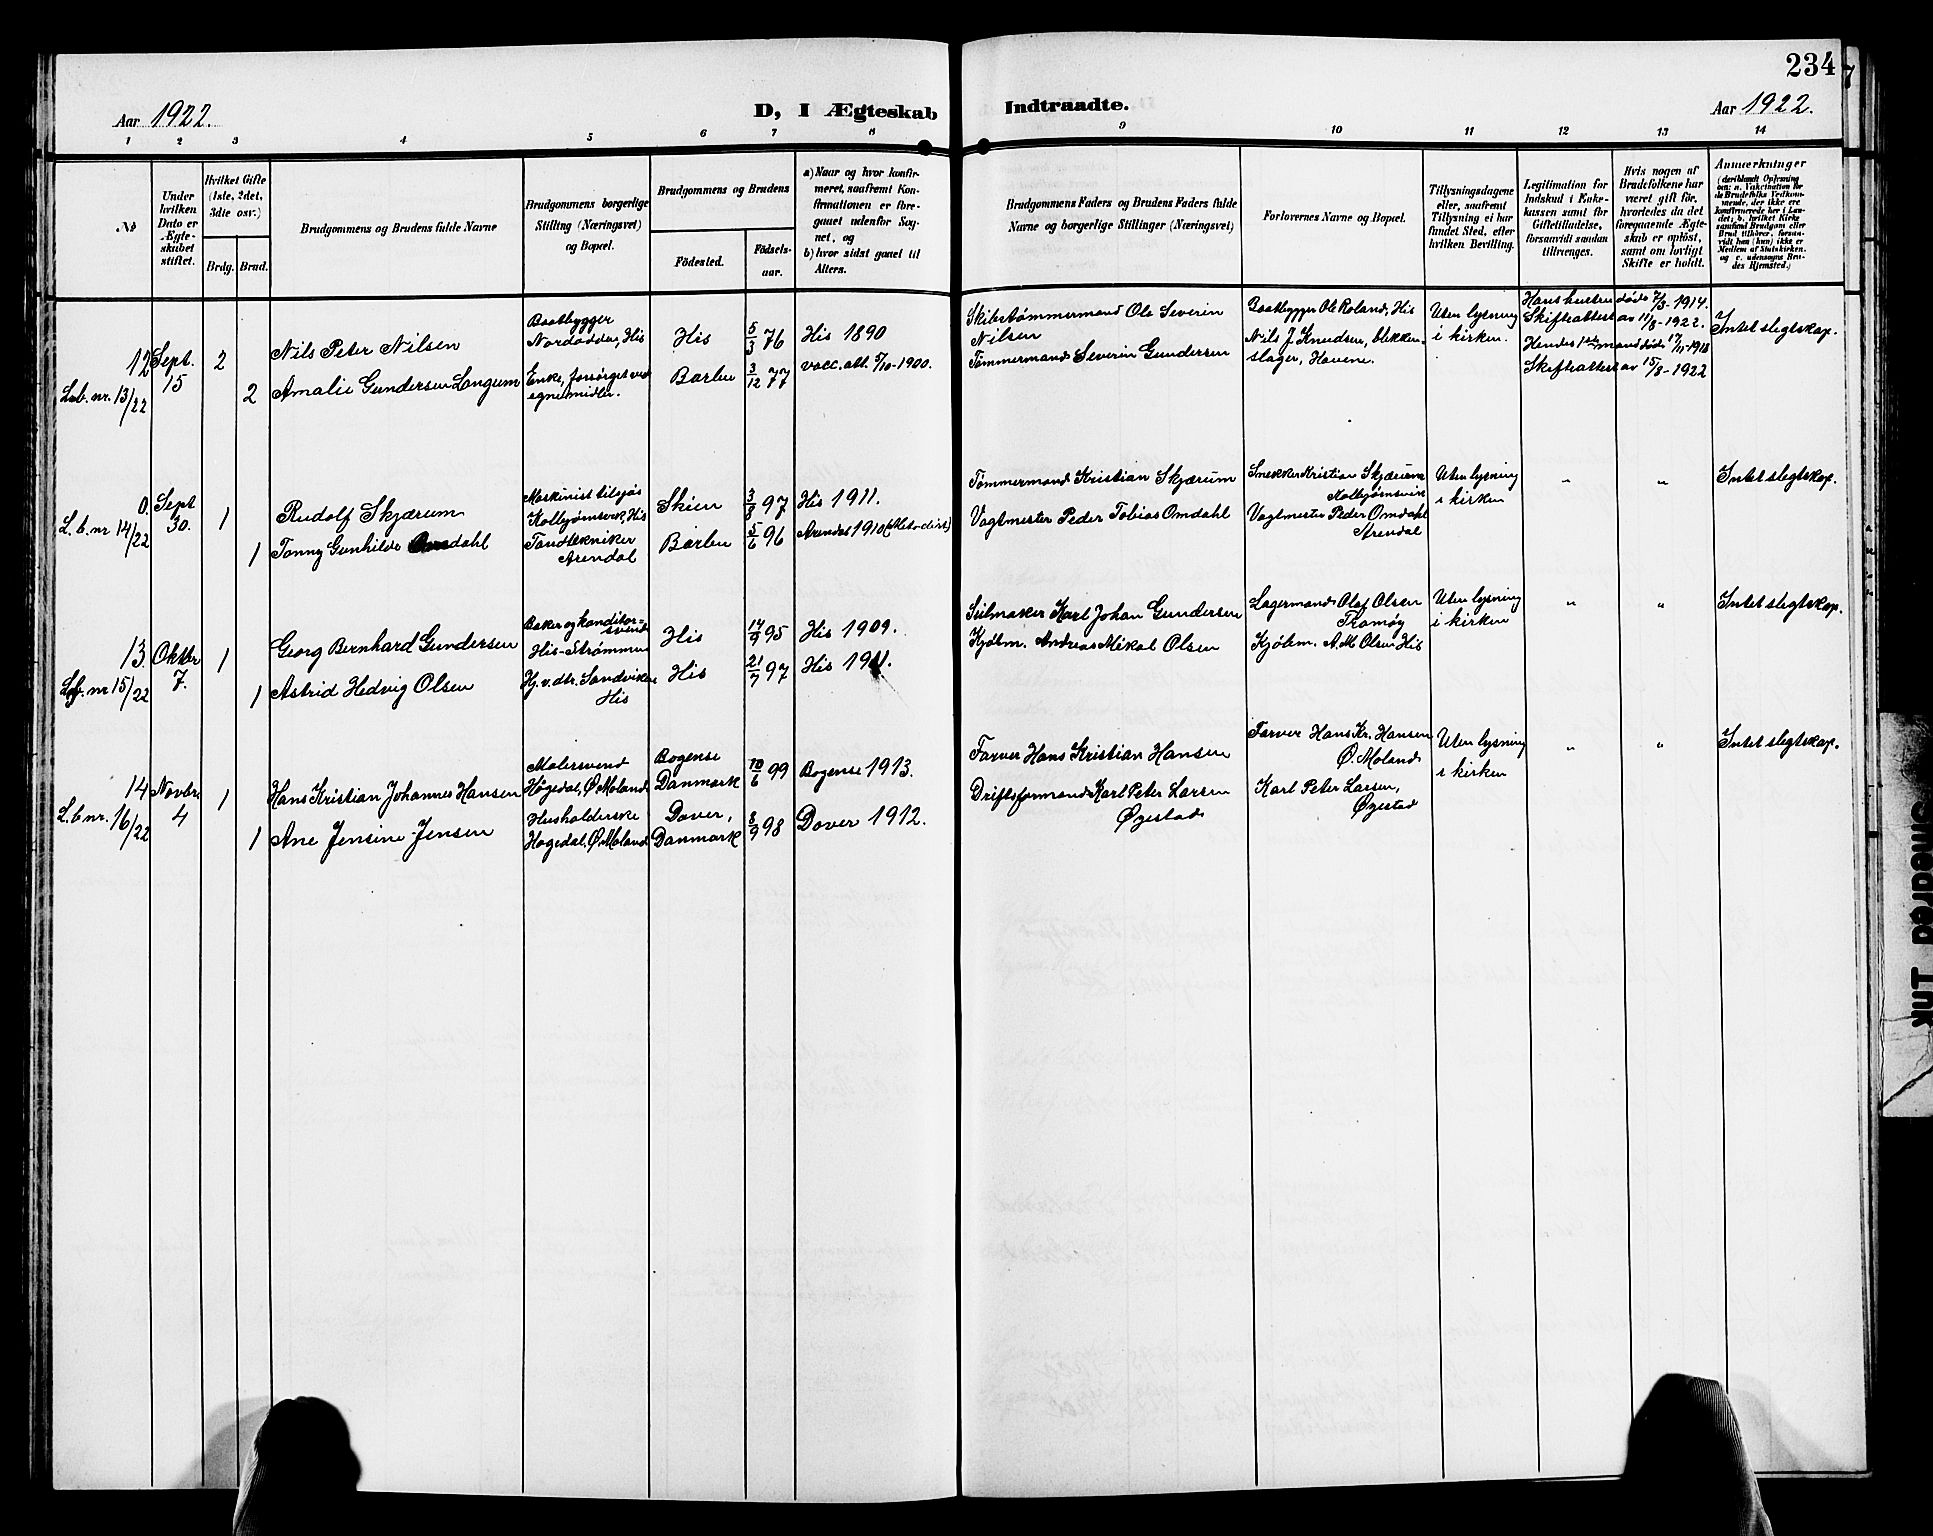 234
Aar 1922.
D, I Ægteskab
Indtraadte.
Aar 1922.
1 2 3 4 5 6 7 8 9 10 11 12 13 14
No
Under hvilken Dato er Ægteskabet stiftet.
Hvilket Gifte (1ste, 2det, 3die osv.)
Brdg. Brud.
Brudgommens og Brudens fulde Navne
Brudgommens borgerlige Stilling (Næringsvei) og Bopæl.
Brudgommens og Brudens
Fødested.
Fødselsaar.
a) Naar og hvor konfirmeret, saafremt Konfirmationen er foregaaet udenfor Sognet, og
b) hvor sidst gaaet til Alters.
Brudgommens Faders og Brudens Faders fulde Navne og borgerlige Stillinger (Næringsvei)
Forlovernes Navne og Bopæl.
Tillysningsdagene eller, saafremt Tillysning ei har fundet Sted, efter hvilken Bevilling.
Legitimation for Indskud i Enkekassen samt for Giftetilladelse, forsaavidt saadan tiltrænges.
Hvis nogen af Brudefolkene har været gift før, hvorledes da det foregaaende Ægteskab er opløst, samt om lovligt Skifte er holdt.
Anmerkninger
12
L.b. nr. 13/22
Sept. 15
2
Nils Peter Nilsen
Baatbygger
Nordodden, His
His
5/3 76
His 1890
2
Amalie Gundersen Langum
Enke, forsørget ved egne midler.
Barbu
3/12 77
vacc. att. 5/10-1900.
Skibstømmermand Ole Severin Nilsen
Tømmermand Severin Gundersen
Baatbygger Ole Roland, His
Nils J. Knudsen, blikkenslager, Havene.
Uten lysning i kirken.
Hans hustru døde 7/3-1914.
Skifteattest av 11/8-1922.
Hendes 1ste mand døde 17/11-1918
Skifteattest av 15/8-1922
Intet slegtskap.
0.
L.b. nr 14/22
Sept 30.
1
Rudolf Skjærum
Maskinist tilsjøs
Kolbjørnsvik, His
Skien
3/8 97
His 1911.
1
Tonny Gunhilde Omdahl
Tandtekniker
Arendal
Barbu
5/6 96
Arendal 1910 (Metodist)
Tømmermand Kristian Skjærum
Vagtmester Peder Tobias Omdahl
Snekker Kristian Skjærum
Kolbjørnsvik
Vagtmester Peder Omdahl
Arendal
Uten lysning i kirken
" "
Intet slegtskap.
13.
L.b. nr 15/22
Oktbr 7.
1
Georg Bernhard Gundersen
Baker og konditorsvend
His-Strømmen
His
14/9 95
His 1909.
1
Astrid Hedvig Olsen
Hj. v. dtr. Sandviken
His
His
21/7 97
His 1911.
Seilmaker Karl Johan Gundersen
Kjøbm. Andreas Mikal Olsen
Lagermand Olaf Olsen
Tromøy
Kjøbm. A.M Olsen His
Uten lysning i kirken
" "
Intet slegtskap.
14
L.b nr. 16/22
Novbr 4
1
Hans Kristian Johannes Hansen
Malersvend
Høgedal, Ø Moland
Bogense
Danmark
10/6 99
Bogense 1913.
1
Ane Jensine Jensen
Husholderske
Høgedal, Ø Moland
Dover,
Danmark
8/9 98
Dover 1912.
Farver Hans Kristian Hansen
Driftsformand Karl Peter Larsen
Øyestad
Farver Hans Kr. Hansen
Ø. Moland
Karl Peter Larsen,
Øyestad
Uten lysning i kirken
" "
Intet slegtskap.